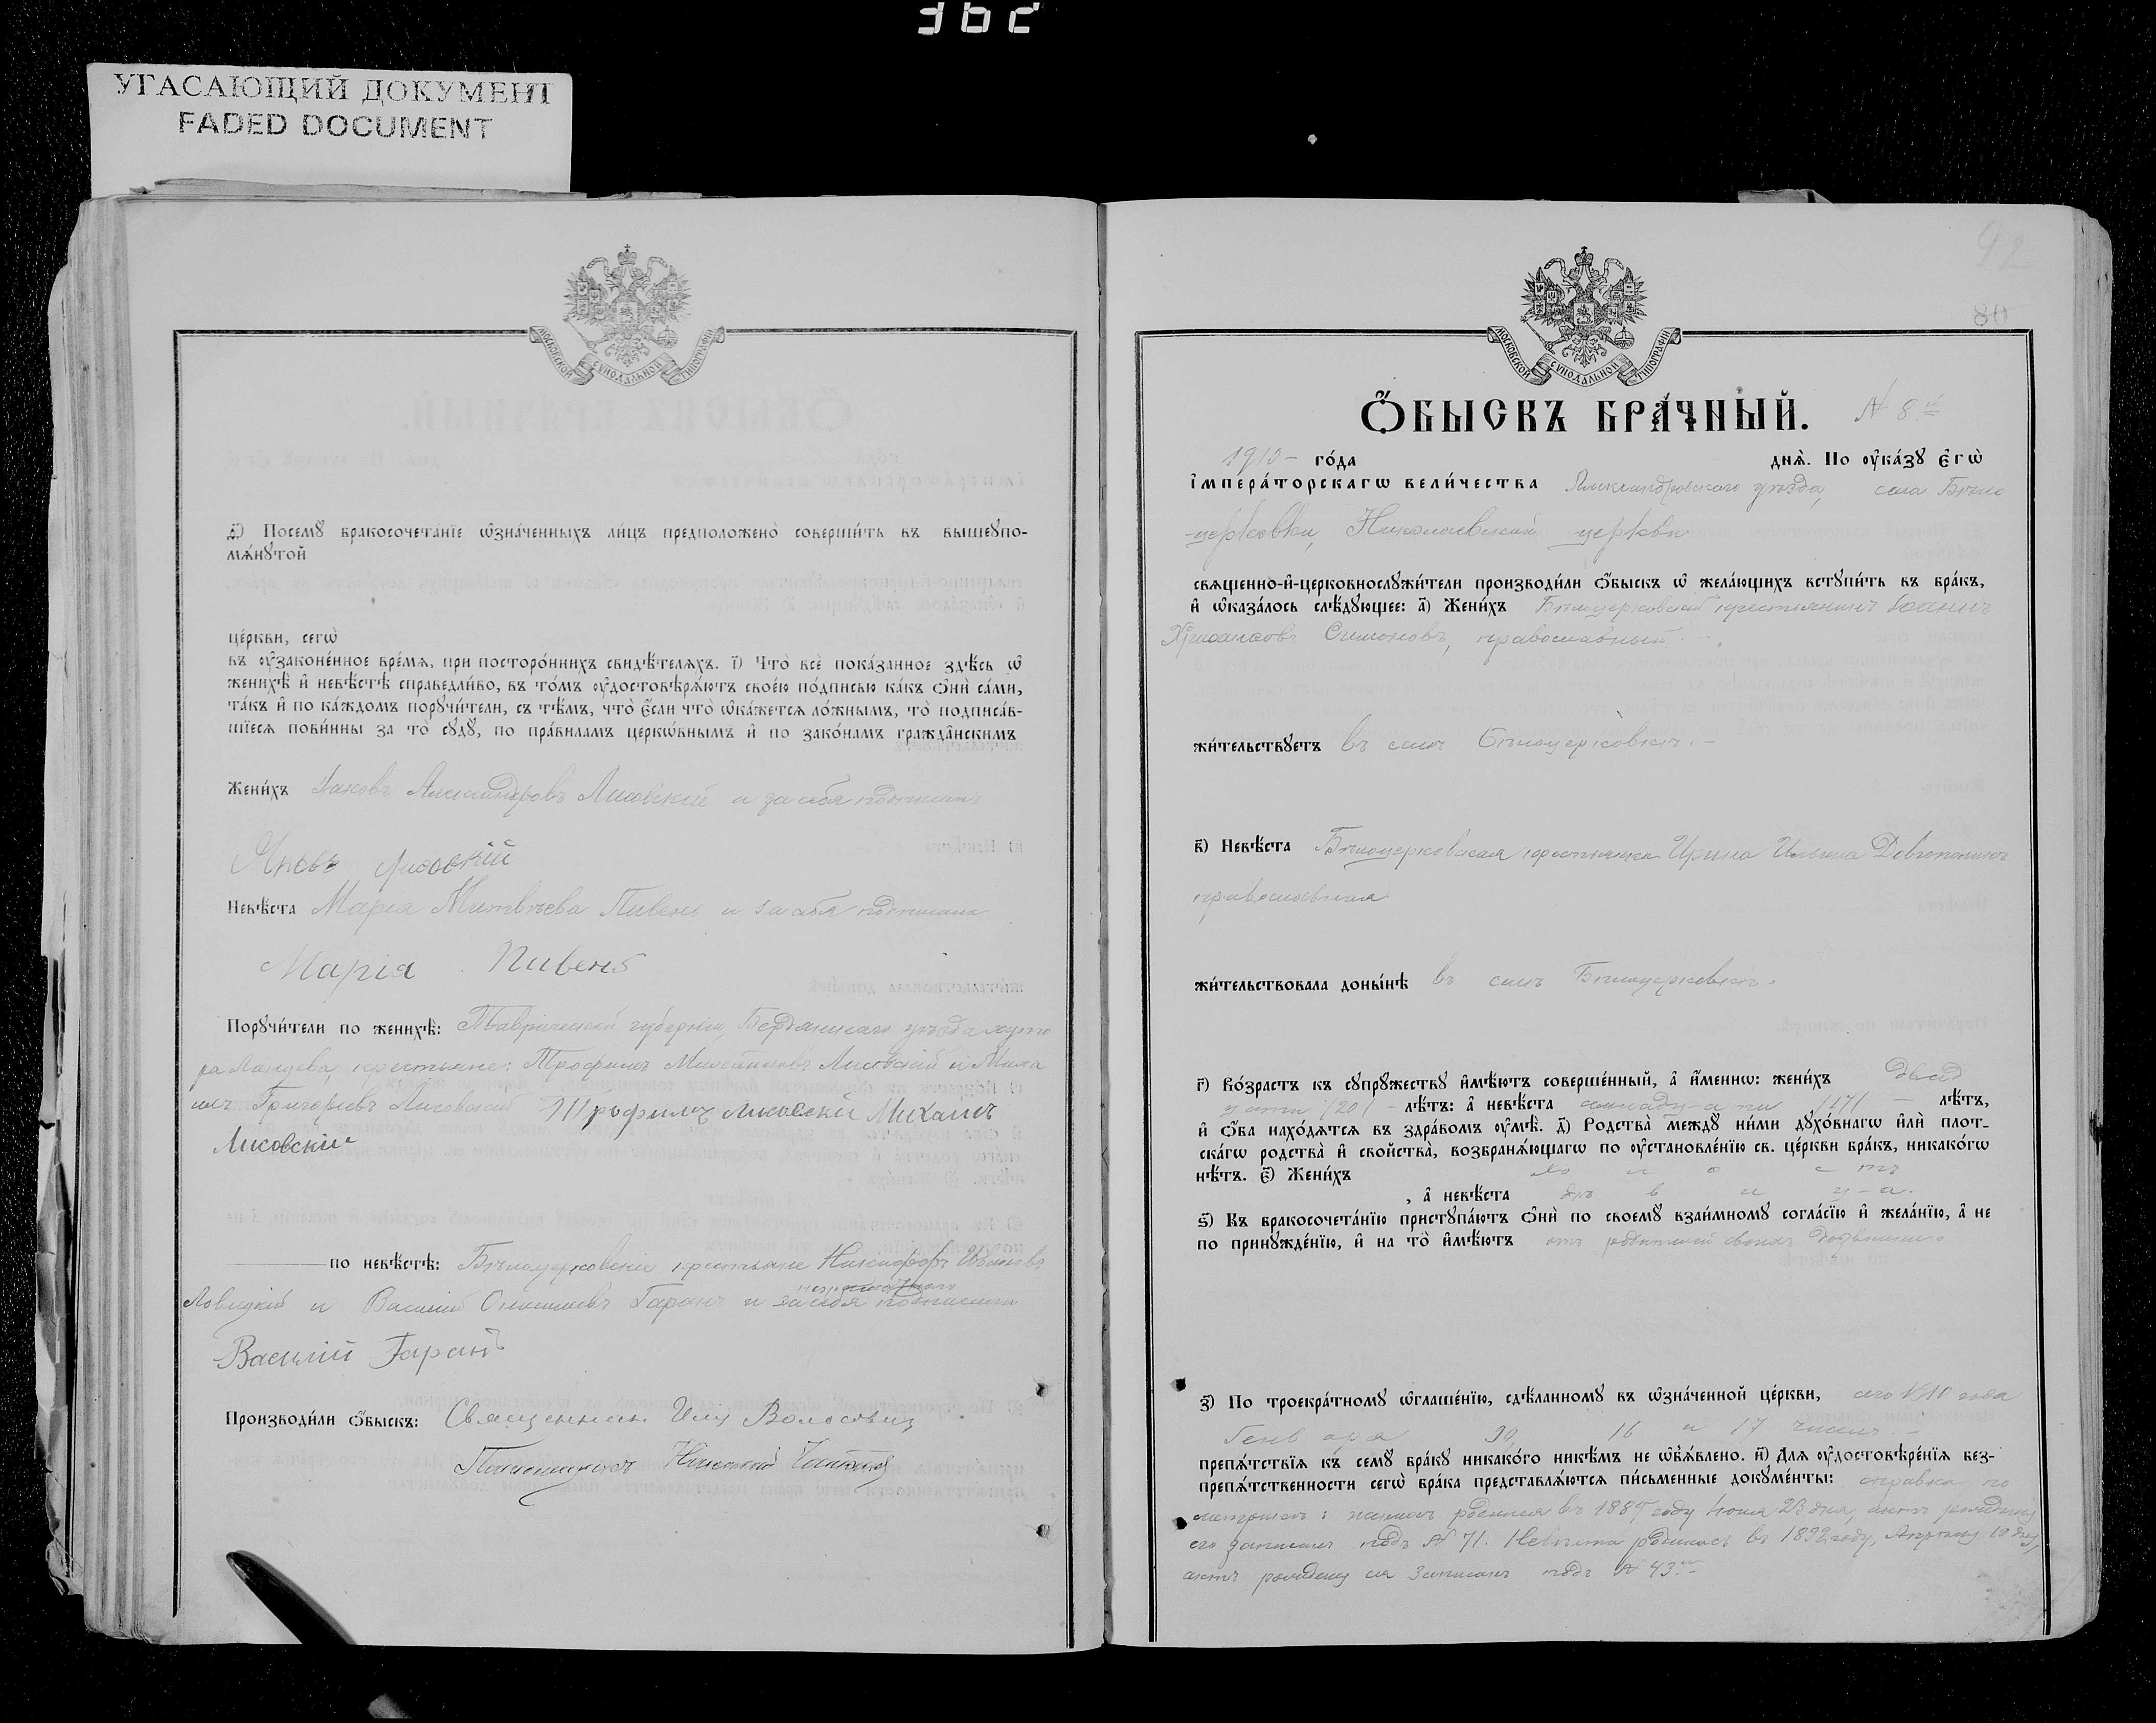 УГАСАЮЩИЙ ДОКУМЕНТ
FADED DOCUMENT
МОСКОВСКОЙ СѴНОДАЛЬНОЙ ТИПОГРАФІИ
Посемꙋ̀ бракосочета́нїе ѡ҆зна́ченныхъ ли́цъ предположено̀ соверши́ть въ вышеꙋпо-
мѧ́нꙋтой
це́ркви, сегѡ̀
въ ᲂу҆зако́ненное вре́мѧ, при посторо́ннихъ свидѣ́телѧхъ. і҃) Что̀ всѐ пока́занное здѣ́сь ѡ҆
женихѣ̀ и҆ невѣ́стѣ справедли́во, въ то́мъ ᲂу҆достовѣрѧ́ютъ свое́ю по́дписью ка́къ ѻ҆нѝ са́ми,
та́къ и҆ по ка́ждомъ порꙋчи́тели, съ тѣ́мъ, что̀ є҆́сли что̀ ѡ҆ка́жетсѧ ло́жнымъ, то̀ подписа́в-
шїесѧ пови́нны за то̀ сꙋдꙋ̀, по пра́виламъ церкѡ́внымъ и҆ по зако́намъ гражда́нскимъ
Жени́хъ Іаковъ Александровъ Лисовскій и за себя подписался
Яковъ Лисовскій
Невѣ́ста Марія Матвѣева Пивень и за себя подписалась
Марія Пивень
Порꙋчи́тели по женихѣ̀: Таврической губерніи, Бердянскаго уѣзда хуто
ра крестьяне: Трофимъ Лисовскій и Миха
илъ Григорьевъ Лисовскій Трофимъ Лисовскій Михаилъ
Лисовскій
по невѣ́стѣ: Бѣлоцерковскіе крестьяне Никифоръ Ивановъ
и Василій Онисимовъ Гаранъ и за себя подписались
Василій Гаранъ
Производи́ли ѻ҆́быскъ: Священникъ Илія Волосовичъ
Псаломщикъ Николай
80
Ѻ҆́БЫСКЪ БРА́ЧНЫЙ. № 8й
1910 – го́да днѧ̀. По ᲂу҆ка́зꙋ Є҆гѡ̀
І҆мпера́торскагѡ вели́чества Александровскаго уѣзда, села Бѣло
церковки, Николаевской церкви
свѧще́нно-и҆-церковнослꙋжи́тели производи́ли ѻ҆́быскъ ѡ҆ жела́ющихъ встꙋпи́ть въ бра́къ,
и҆ ѡ҆каза́лось слѣ́дꙋющее: а҃) Жени́хъ Бѣлоцерковскій крестьянинъ Іоаннъ
Хрисанѳовъ Симоновъ, православный.
жи́тельствꙋетъ въ селѣ Бѣлоцерковкѣ. –
в҃) Невѣ́ста Бѣлоцерковская крестьянка Ирина Ильина
православная
жи́тельствовала доны́нѣ въ селѣ Бѣлоцерковкѣ.
г҃) Во́зрастъ къ сꙋпрꙋ́жествꙋ и҆мѣ́ютъ соверше́нный, а҆ и҆́меннѡ: жени́хъ двад
цати /20/ – лѣ́тъ: а҆ невѣ́ста семнадц–ати /17/ – лѣ́тъ,
и҆ ѻ҆́ба нахо́дѧтсѧ въ здра́вомъ ᲂу҆мѣ̀. д҃) Родства̀ междꙋ̀ ни́ми дꙋхо́внагѡ и҆лѝ плот-
ска́гѡ родства̀ и҆ сво́йства̀, возбранѧ́ющагѡ по ᲂу҆становле́нїю св. це́ркви бра́къ, никако́гѡ
нѣ́тъ. є҃) Жени́хъ хо л о с тъ
, а҆ невѣ́ста дѣ в и ц–а.
ѕ҃) Къ бракосочета́нїю пристꙋпа́ютъ ѻ҆нѝ по своемꙋ̀ взаи́мномꙋ согла́сїю и҆ жела́нїю, а҆ не
по принꙋжде́нїю, и҆ на то̀ и҆мѣ́ютъ отъ родителей своихъ дозволеніе.
з҃) По троекра́тномꙋ ѡ҆глаше́нїю, сдѣ́ланномꙋ въ ѡ҆зна́ченной це́ркви, сего 1910 года
Генв аря 16 и 17 чиселъ –
препѧ́тствїѧ къ семꙋ̀ бра́кꙋ никако́гѡ никѣ́мъ не ѡ҆б̾ѧ́влено. и҃) Длѧ ᲂу҆достовѣре́нїѧ без-
препѧ́тственности сегѡ̀ бра́ка представлѧ́ютсѧ пи́сьменные докꙋме́нты: справка по
метрикѣ: женихъ родился въ году Іюня 23 дня, актъ рожденія
его записанъ подъ № 71. Невѣста родилась въ 1892 году, Апрѣля 10 дня,
актъ рожденія ея записанъ подъ № 43.